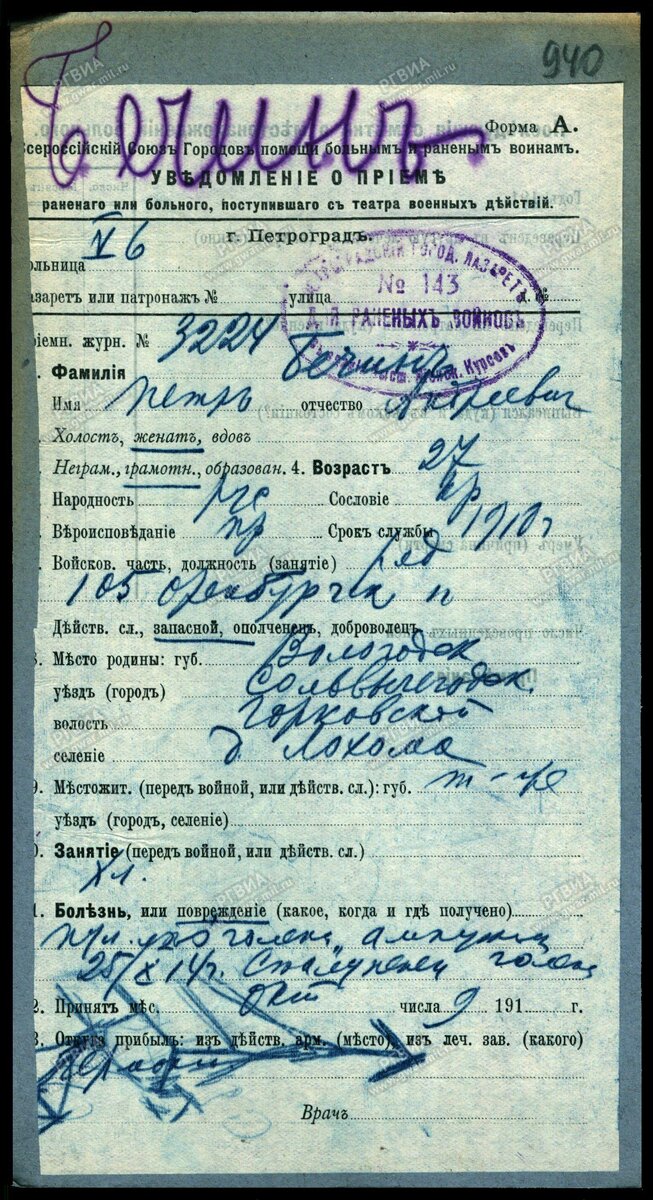 940
Бечинъ
Форма А.
Всероссійскій Союзъ Городовъ помощи больнымъ и раненымъ воинамъ.
УВѢДОМЛЕНІЕ О ПРІЕМѢ
раненаго или больного, поступившаго съ театра военныхъ дѣйствій.
г. Петроградъ.
ольница
азаретъ или патронажъ № улица д. №
ГОРОД. ЛАЗАРЕТЪ
№ 143
ДЛЯ РАНЕНЫХЪ ВОЙНОВЪ
Курсовъ
ріемн. журн. № 3224
Фамилія Бечинъ
Имя Петръ отчество Андреевич
Холостъ, женатъ, вдовъ
Неграм., грамотн., образован. 4. Возрастъ 27
Народность рус Сословіе кр
Вѣроисповѣданіе пр Срокъ службы 1910г
Войсков. часть, должность (занятіе) ряд
105 Оренбургск п
Дѣйств. сл., запасной, ополченецъ, доброволецъ
8. Мѣсто родины: губ. Вологодск
уѣздъ (городъ) Сольвычегодск.
волость Горковской
селеніе д. Лохома
9. Мѣстожит. (передъ войной, или дѣйств. сл.): губ.
уѣздъ (городъ, селеніе)
0. Занятіе (передъ войной, или дѣйств. сл.)
Хл.
1. Болѣзнь, или поврежденіе (какое, когда и гдѣ получено)
голени
Сталупенен голен
2. Принятъ мѣс. окт числа 9 191 г.
3. Откуда прибылъ: изъ дѣйств. арм. (мѣсто), изъ леч. зав. (какого)
Врачъ